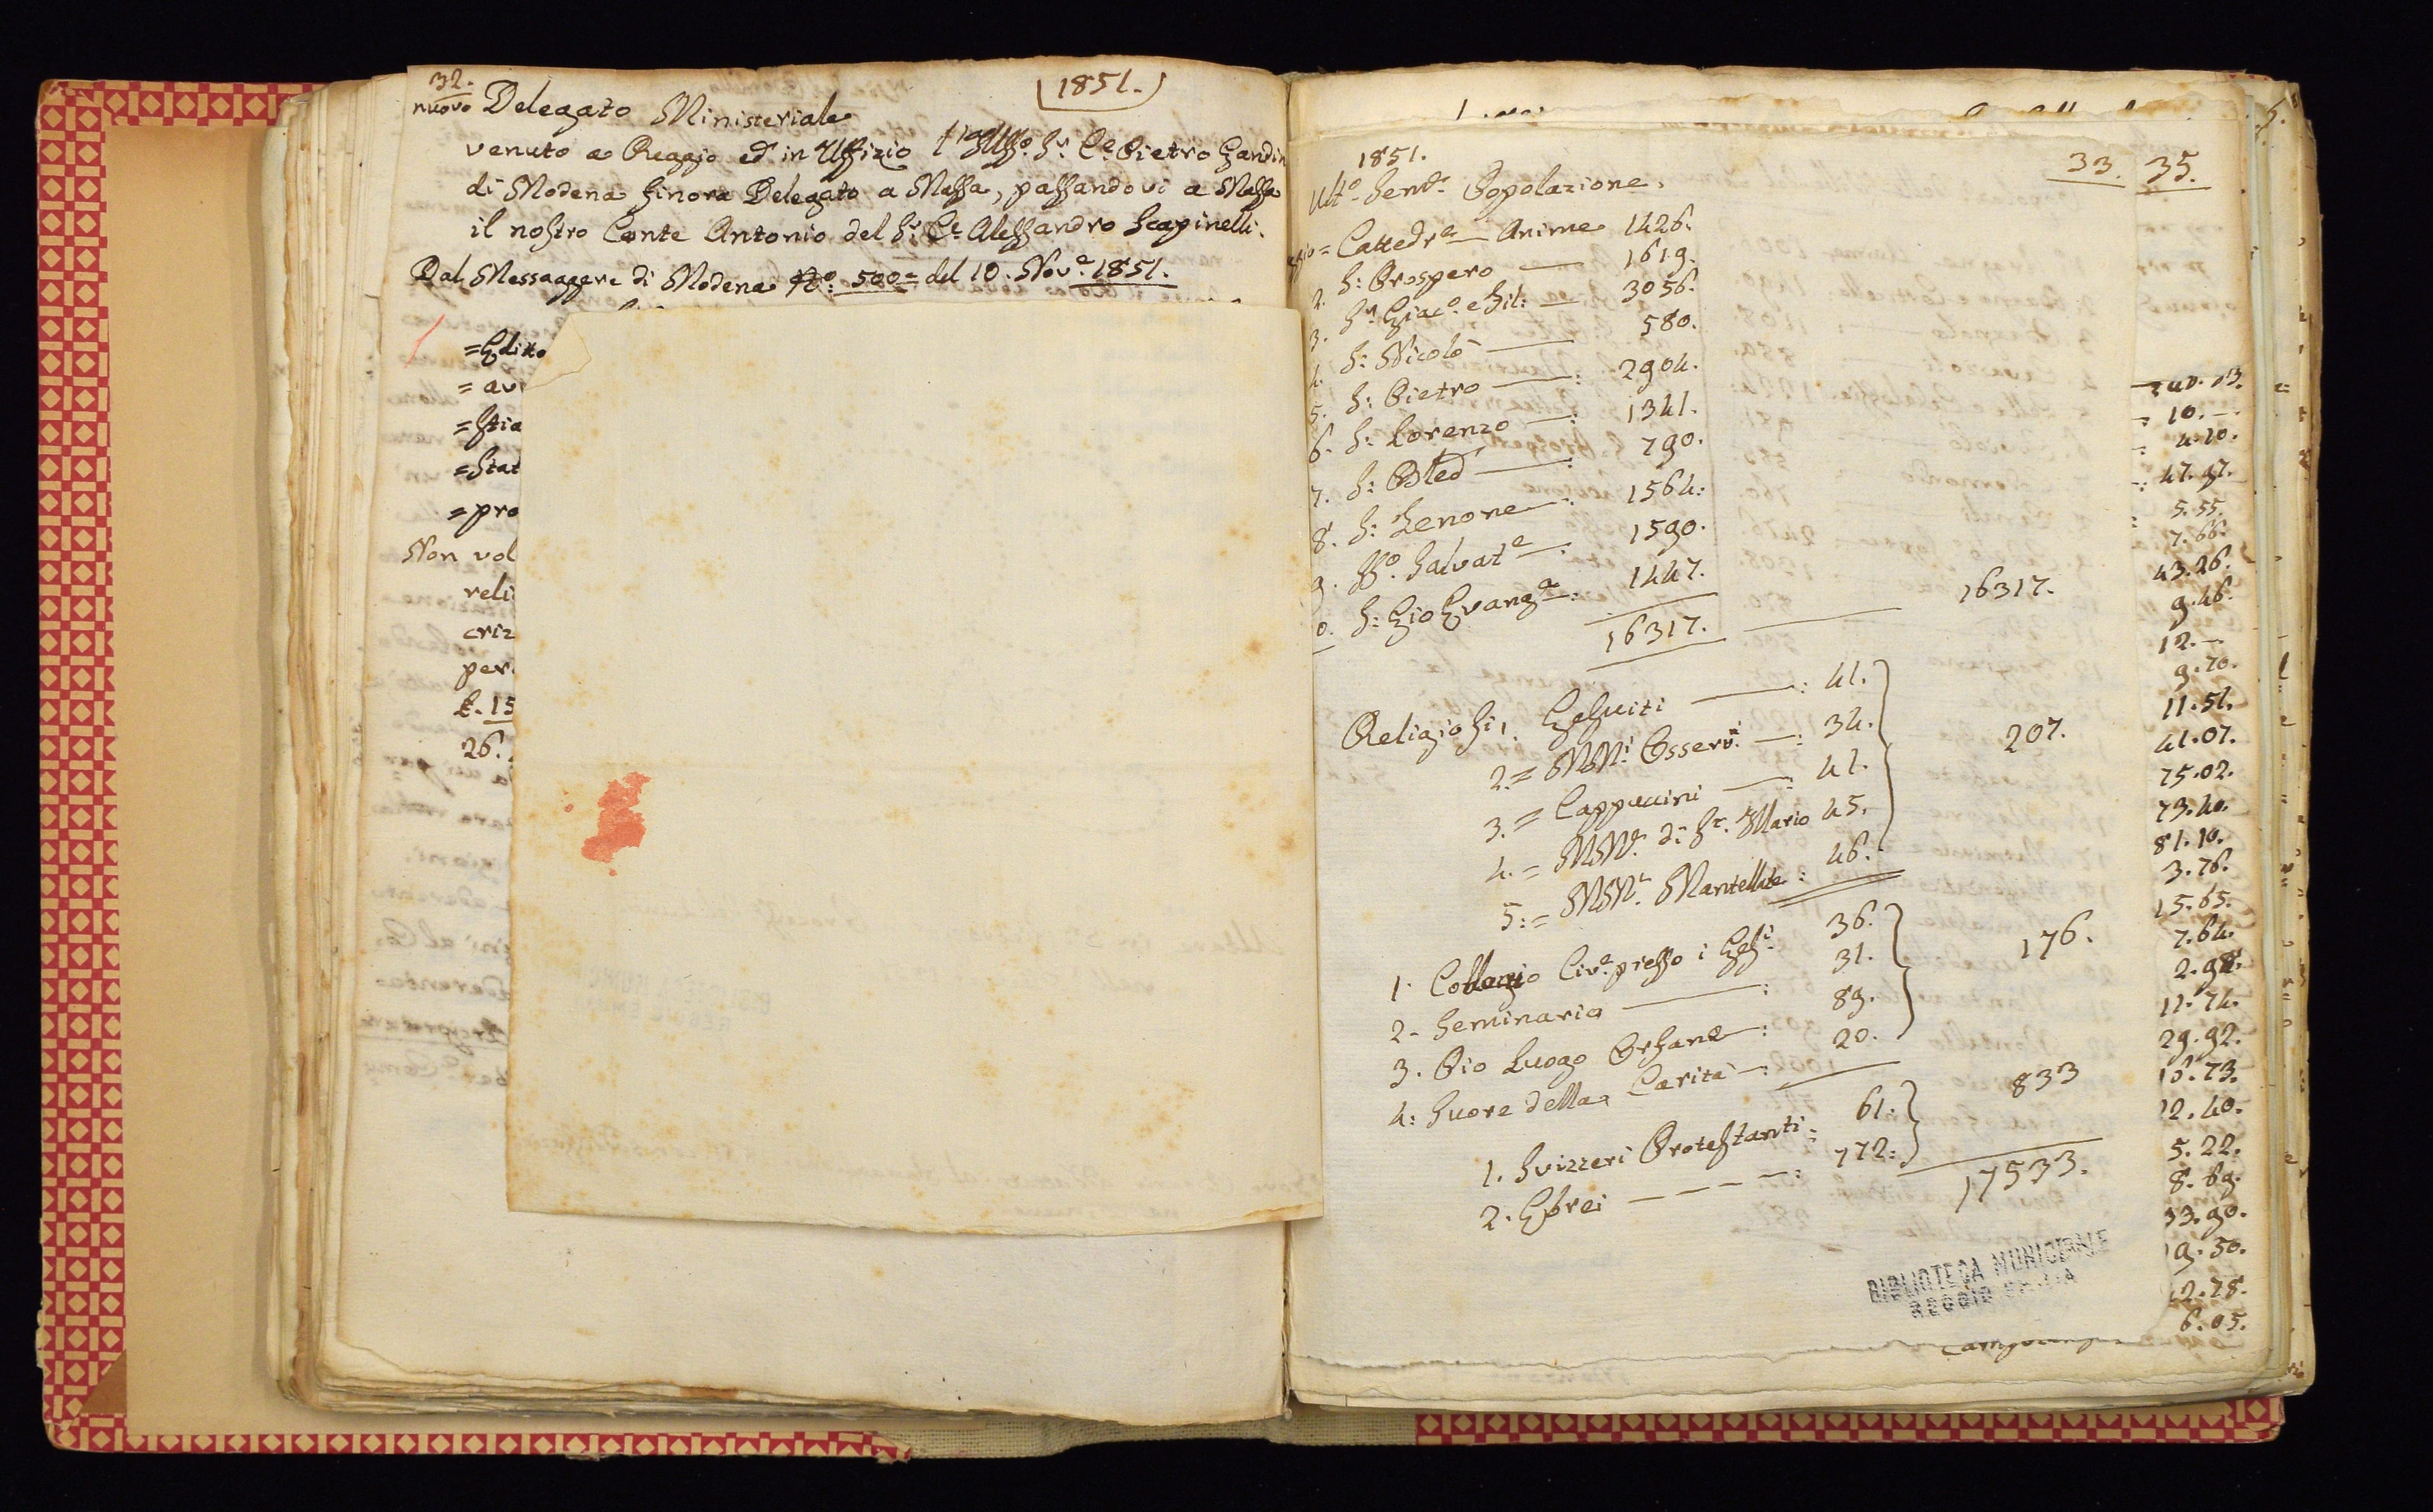 32.
1851.
nuovo Delegato Ministeriale
venuto a Reggio ed in Uffizio Sr. Ce. Pietro Gandin
di Modena finora Delegato a Massa, passandovi a Massa
il nostro Conte Antonio del Sr. Ce. Alessandro Scapinelli.
Dal Messaggere di Modena No. 500 = del 10. Nove. 1851.
= Editto
= av
= Stia
= Stat
= pro
Non vol
reli
criz
per
£. 15
26.
1851.
33. 35.
Popolazione.
Cattedre. Anime 1426.
2. S: Prospero — 1619.
3. Giaco. e Fil: — 3056.
4. S: Nicolò — 580.
5. S: Pietro —: 2904.
6. S: Lorenzo —: 1341.
7. S: —: 790.
8. S: Zenone —: 1564:
9. SSo. Salvate —: 1590.
S: Gio Evanga —: 1447.
16317. — 16317.
Religiosi 1. Gesuiti —: 41.
2. = MMi. Osservi. —: 34.
3. = Cappuccini —: 41.
4. = di Sr. Maria 45.
5: = Mantellate: 46.
207.
1. Collegio Cive. presso i Gesi. 36.
2. Seminario —: 31.
3. Pio Luogo Orfane —: 89.
4: Suore della Carità —: 20.
176.
1. Svizzeri Protestanti: 61.
2. Ebrei — — — —: 772:
833
17533.
BIBLIOTECA MUNICIPALE
REGGIO EMILIA
10. —
4.10.
47.97.
5.55.
7.66.
43.26.
9.46.
12. —
9.70.
11.51.
41.07.
75.02.
73.40.
81.10.
3.76.
15.65.
7.64.
2.98.
11.74.
29.92.
16.73.
12.40.
5.22.
8.69.
33.90.
19.50.
2.78.
6.05.